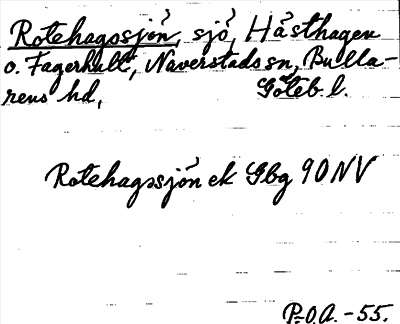 Rotehagssjön, sjö, Hästhagen
o. Fagerhult, Naverstads sn, Bulla-
rens hd, Göteb. l.
Rotehagssjön ek Gbg 90 NV
P.O.A. -55.